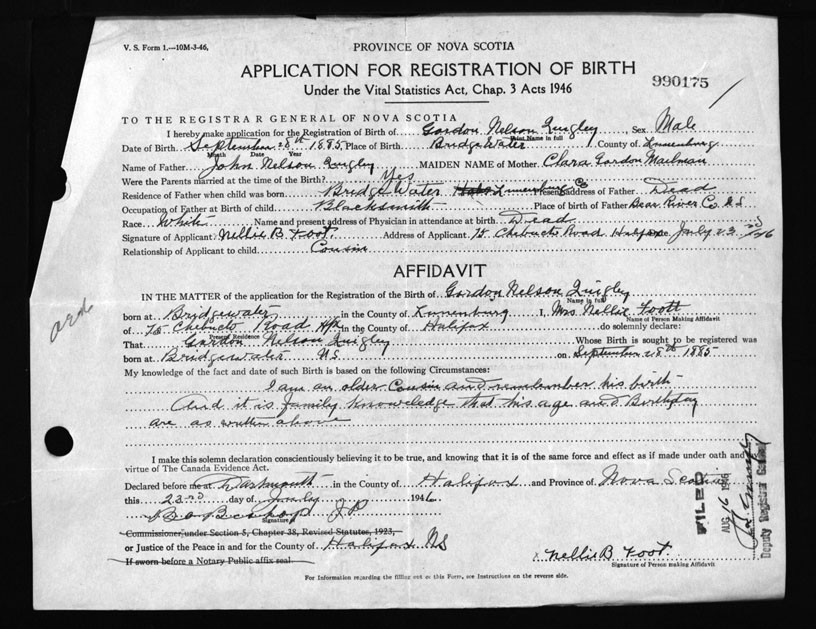 V. S. Form 1.—10M-3-46,
PROVINCE OF NOVA SCOTIA
APPLICATION FOR REGISTRATION OF BIRTH
990175
Under the Vital Statistics Act, Chap. 3 Acts 1946
TO THE REGISTRAR GENERAL OF NOVA SCOTIA
I hereby make application for the Registration of Birth of Gordon Nelson Quigley, Sex Male
Print Name in full
Date of Birth September 28th 1885 Place of Birth Bridge Water County of Lunenburg
Month Date Year
Name of Father John Nelson Quigley MAIDEN NAME of Mother Clara Gordon Mailman
Were the Parents married at the time of the Birth? Yes
Residence of Father when child was born Bridge Water Lunenburg Co Present address of Father Dead
Occupation of Father at Birth of child Blacksmith Place of birth of Father Bear River Co N.S
Race White Name and present address of Physician in attendance at birth Dead
Signature of Applicant Nellie B Foot. Address of Applicant 75 Chebucto Road Halifax July 23
Relationship of Applicant to child Cousin
AFFIDAVIT
IN THE MATTER of the application for the Registration of Birth of Gordon Nelson Quigley
Name in full
born at Bridgewater in the County of Lunenburg I, Mrs Nellie Foott
Name of Person Making Affidavit
of 75 Chebucto Road Hfx in the County of Halifax do solemnly declare:
Present Residence
That Gordon Nelson Quigley Whose Birth is sought to be registered was
born at Bridgewater NS on September 28th 1885
My knowledge of the fact and date of such Birth is based on the following Circumstances:
I am an older Cousin and remember his birth
And it is family knowledge that his age and Birthday
are as written above
I make this solemn declaration conscientiously believing it to be true, and knowing that it is of the same force and effect as if made under oath and
virtue of The Canada Evidence Act.
Declared before me at Dartmouth in the County of Halifax and Province of Nova Scotia
this 23rd day of July 1946.
J P
Signature
Commissioner under Section 5, Chapter 38, Revised Statutes, 1923,
or Justice of the Peace in and for the County of Halifax NS
If sworn before a Notary Public affix seal.
x Nellie B Foot
Signature of Person making Affidavit
For Information regarding the filling out of this Form, see Instructions on the reverse side.
FILED
AUG 16 1946
Deputy Registrar General